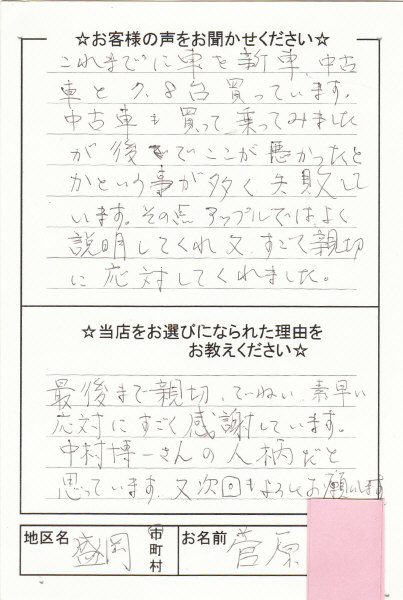 ☆お客様の声をお聞かせください☆
これまでに車を新車、中古
車と7、8台買っています。
中古車も買って乗ってみました
が後でここが悪かったと
かという事が多く失敗して
います。その点アップルではよく
説明してくれ又、すごく親切
に応対してくれました。
☆当店をお選びになられた理由を
お教えください☆
最後まで親切、ていねい、素早い
応対にすごく感謝しています。
中村博一さんの人柄だと
思っています。又次回もよろしくお願いします
地区名 盛岡 市町村 お名前 菅原